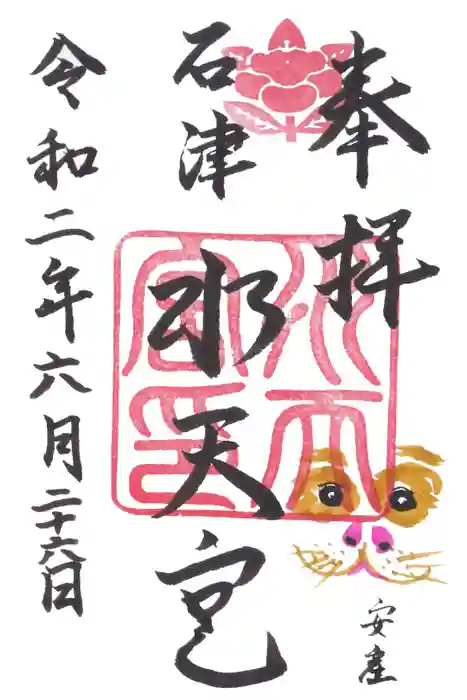 奉拝
石津
水天宮
令和二年六月二十六日
安産
水天宮印